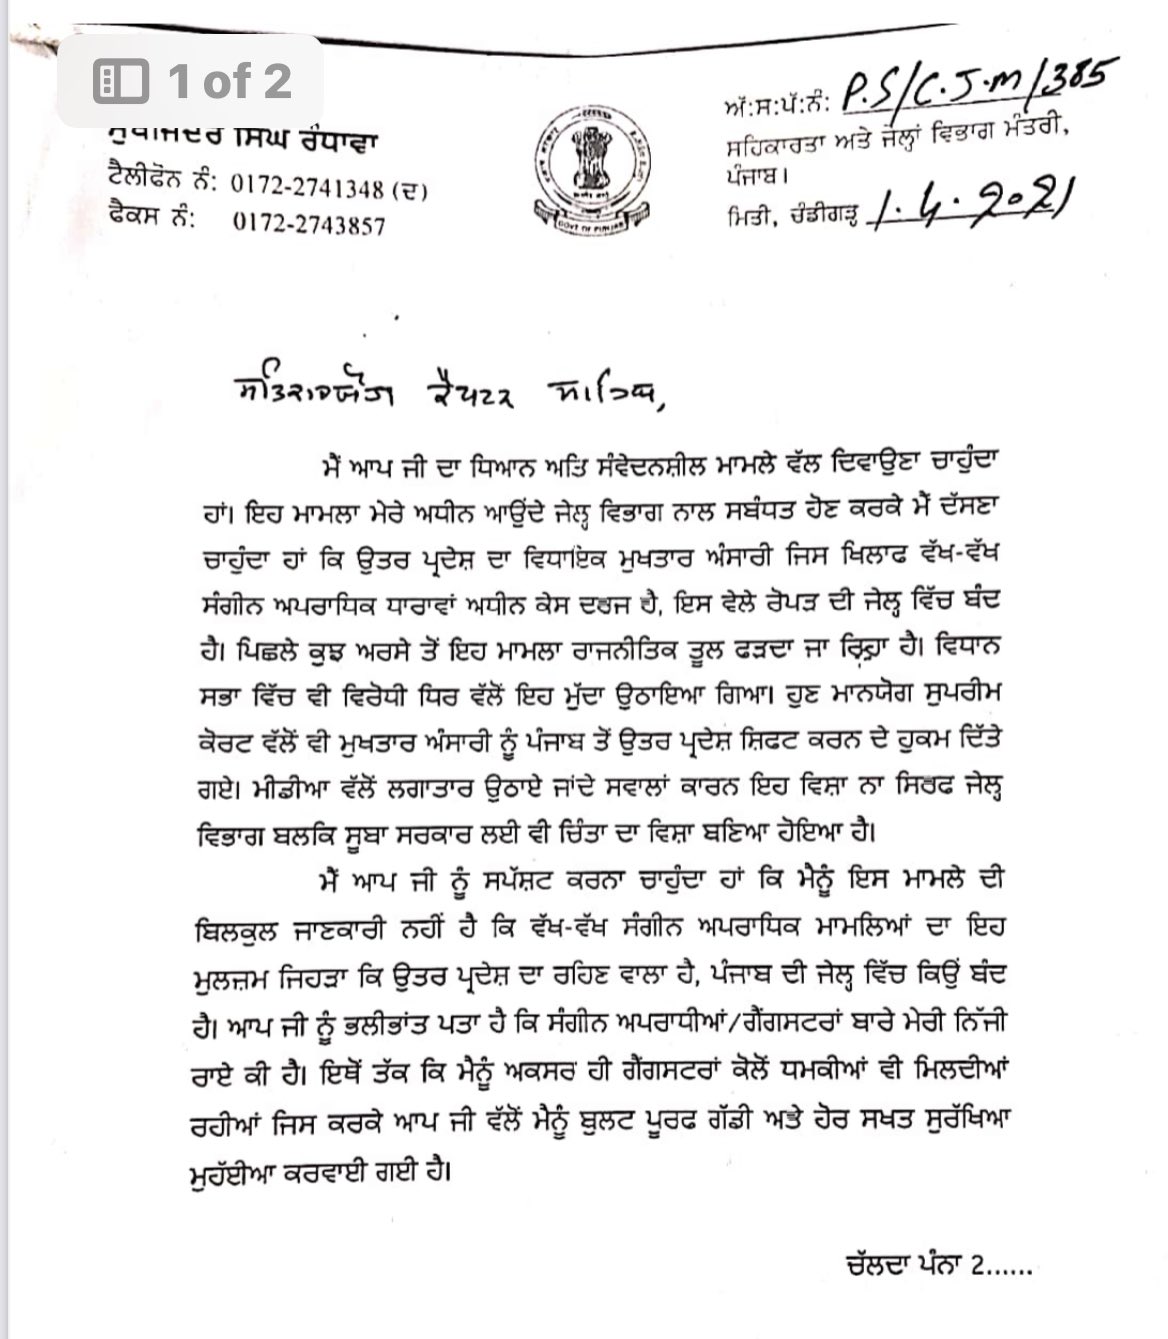 1 of 2
ਸੁਖਜਿੰਦਰ ਸਿੰਘ ਰੰਧਾਵਾ
ਟੈਲੀਫੋਨ ਨੰ: 0172-2741348 (ਦ)
ਫੈਕਸ ਨੰ: 0172-2743857
GOVT OF PUNJAB
ਅੱ:ਸ:ਪੱ:ਨੰ: P.S/C.J.M/385
ਸਹਿਕਾਰਤਾ ਅਤੇ ਜੇਲ੍ਹਾਂ ਵਿਭਾਗ ਮੰਤਰੀ,
ਪੰਜਾਬ।
ਮਿਤੀ, ਚੰਡੀਗੜ੍ਹ 1.4.2021
ਸਤਿਕਾਰਯੋਗ ਕੈਪਟਨ ਸਾਹਿਬ,
ਮੈਂ ਆਪ ਜੀ ਦਾ ਧਿਆਨ ਅਤਿ ਸੰਵੇਦਨਸ਼ੀਲ ਮਾਮਲੇ ਵੱਲ ਦਿਵਾਉਣਾ ਚਾਹੁੰਦਾ
ਹਾਂ। ਇਹ ਮਾਮਲਾ ਮੇਰੇ ਅਧੀਨ ਆਉਂਦੇ ਜੇਲ੍ਹ ਵਿਭਾਗ ਨਾਲ ਸਬੰਧਤ ਹੋਣ ਕਰਕੇ ਮੈਂ ਦੱਸਣਾ
ਚਾਹੁੰਦਾ ਹਾਂ ਕਿ ਉਤਰ ਪ੍ਰਦੇਸ਼ ਦਾ ਵਿਧਾਇਕ ਮੁਖਤਾਰ ਅੰਸਾਰੀ ਜਿਸ ਖਿਲਾਫ ਵੱਖ-ਵੱਖ
ਸੰਗੀਨ ਅਪਰਾਧਿਕ ਧਾਰਾਵਾਂ ਅਧੀਨ ਕੇਸ ਦਰਜ ਹੈ, ਇਸ ਵੇਲੇ ਰੋਪੜ ਦੀ ਜੇਲ੍ਹ ਵਿੱਚ ਬੰਦ
ਹੈ। ਪਿਛਲੇ ਕੁਝ ਅਰਸੇ ਤੋਂ ਇਹ ਮਾਮਲਾ ਰਾਜਨੀਤਿਕ ਤੂਲ ਫੜਦਾ ਜਾ ਰਿਹਾ ਹੈ। ਵਿਧਾਨ
ਸਭਾ ਵਿੱਚ ਵੀ ਵਿਰੋਧੀ ਧਿਰ ਵੱਲੋਂ ਇਹ ਮੁੱਦਾ ਉਠਾਇਆ ਗਿਆ। ਹੁਣ ਮਾਨਯੋਗ ਸੁਪਰੀਮ
ਕੋਰਟ ਵੱਲੋਂ ਵੀ ਮੁਖਤਾਰ ਅੰਸਾਰੀ ਨੂੰ ਪੰਜਾਬ ਤੋਂ ਉਤਰ ਪ੍ਰਦੇਸ਼ ਸ਼ਿਫਟ ਕਰਨ ਦੇ ਹੁਕਮ ਦਿੱਤੇ
ਗਏ। ਮੀਡੀਆ ਵੱਲੋਂ ਲਗਾਤਾਰ ਉਠਾਏ ਜਾਂਦੇ ਸਵਾਲਾਂ ਕਾਰਨ ਇਹ ਵਿਸ਼ਾ ਨਾ ਸਿਰਫ ਜੇਲ੍ਹ
ਵਿਭਾਗ ਬਲਕਿ ਸੂਬਾ ਸਰਕਾਰ ਲਈ ਵੀ ਚਿੰਤਾ ਦਾ ਵਿਸ਼ਾ ਬਣਿਆ ਹੋਇਆ ਹੈ।
ਮੈਂ ਆਪ ਜੀ ਨੂੰ ਸਪੱਸ਼ਟ ਕਰਨਾ ਚਾਹੁੰਦਾ ਹਾਂ ਕਿ ਮੈਨੂੰ ਇਸ ਮਾਮਲੇ ਦੀ
ਬਿਲਕੁਲ ਜਾਣਕਾਰੀ ਨਹੀਂ ਹੈ ਕਿ ਵੱਖ-ਵੱਖ ਸੰਗੀਨ ਅਪਰਾਧਿਕ ਮਾਮਲਿਆਂ ਦਾ ਇਹ
ਮੁਲਜ਼ਮ ਜਿਹੜਾ ਕਿ ਉਤਰ ਪ੍ਰਦੇਸ਼ ਦਾ ਰਹਿਣ ਵਾਲਾ ਹੈ, ਪੰਜਾਬ ਦੀ ਜੇਲ੍ਹ ਵਿੱਚ ਕਿਉਂ ਬੰਦ
ਹੈ। ਆਪ ਜੀ ਨੂੰ ਭਲੀਭਾਂਤ ਪਤਾ ਹੈ ਕਿ ਸੰਗੀਨ ਅਪਰਾਧੀਆਂ/ਗੈਂਗਸਟਰਾਂ ਬਾਰੇ ਮੇਰੀ ਨਿੱਜੀ
ਰਾਏ ਕੀ ਹੈ। ਇਥੋਂ ਤੱਕ ਕਿ ਮੈਨੂੰ ਅਕਸਰ ਹੀ ਗੈਂਗਸਟਰਾਂ ਕੋਲੋਂ ਧਮਕੀਆਂ ਵੀ ਮਿਲਦੀਆਂ
ਰਹੀਆਂ ਜਿਸ ਕਰਕੇ ਆਪ ਜੀ ਵੱਲੋਂ ਮੈਨੂੰ ਬੁਲਟ ਪੂਰਫ ਗੱਡੀ ਅਤੇ ਹੋਰ ਸਖਤ ਸੁਰੱਖਿਆ
ਮੁਹੱਈਆ ਕਰਵਾਈ ਗਈ ਹੈ।
ਚੱਲਦਾ ਪੰਨਾ 2......